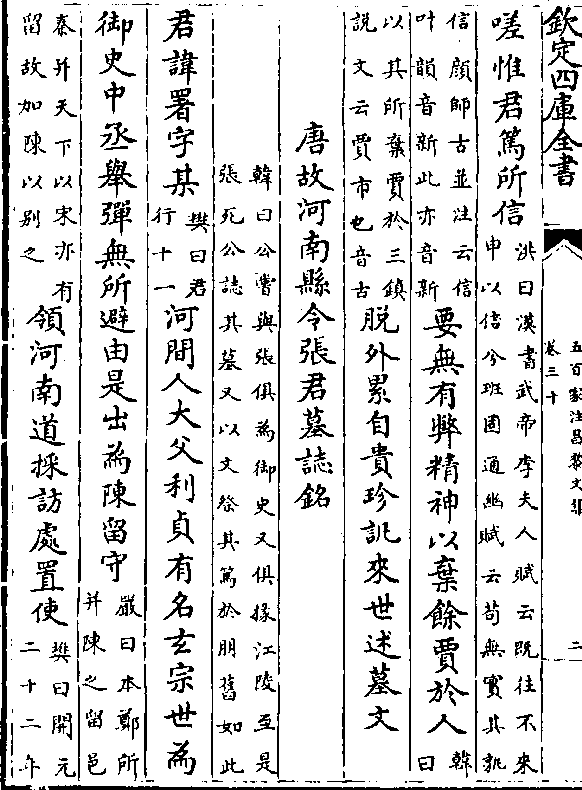 欽定四庫全書
五百家注昌黎文集
卷三十
二
嗟惟君篤所信洪曰漢書武帝李夫人賦云既往不來申以信兮班固通幽賦云苟無實其孰
信顔師古並注云信叶韻音新此亦音新要無有弊精神以棄餘賈於人韓曰
以其所棄賈於三鎮説文云賈市也音古脱外累自貴珍訊來世述墓文
唐故河南縣令張君墓誌銘
韓曰公嘗與張俱為御史又俱掾江陵至是張死公誌其墓又以文祭其篤於朋舊如此
君諱署字某樊曰君行十一河間人大父利貞有名玄宗世為
御史中丞舉彈無所避由是出為陳留守嚴曰本鄭所并陳之留邑
秦并天下以宋亦有留故加陳以别之領河南道採訪處置使樊曰開元二十二年